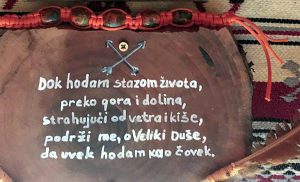 Dok hodam stazom života,
preko gora i dolina,
strahujući od vetra i kiše,
podrži me, o Veliki Duše,
da uvek hodam kao čovek.